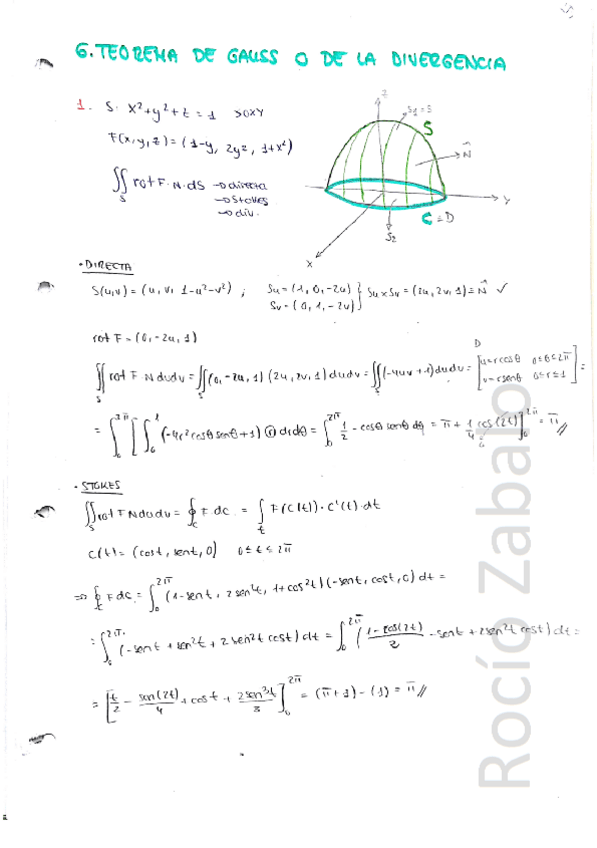 6. TEOREMA DE GAUSS O DE LA DIVERGENCIA
1. S. x²+y²+z=1 >OXY
F(x,y,z)=(1-y, 2yz, 1+x²)
∬_S rot F·N·dS → directa
→ Stokes
→ div.
Z
S1=S
S
N
Y
C=D
S2
X
• DIRECTA
S(u,v)=(u, v, 1-u²-v²) ; Su=(1,0,-2u) } Su×Sv=(2u,2v,1)≡N ✓
Sv=(0,1,-2v)
rot F=(0,-2u,1)
∬_S rot F N dudv=∬_S(0,-2u,1)(2u,2v,1)dudv=∬(-4uv+1)dudv= D [u=rcosθ 0≤θ≤2π
v=rsenθ 0≤r≤1] =
=∫_0^2π [∫_0^1 (-4r²cosθsenθ+1) r drdθ=∫_0^2π 1/2 - cosθ senθ dθ = π+ 1/4 cos(2t)]_0^2π = π//
• STOKES
∬_S rot F N dudv=∮_C F dC = ∫_t F(C(t))·C'(t)·dt
C(t)=(cost, sent, 0) 0≤t≤2π
⇒ ∮_C F dC=∫_0^2π (1-sent, 2sen²t, 1+cos²t)(-sent, cost, 0) dt=
=∫_0^2π (-sent+sen²t+2sen²t cost) dt=∫_0^2π (1-cos(2t)/2 -sent+2sen²t cost) dt=
=[t/2 - sen(2t)/4 +cost+ 2sen³t/3]_0^2π = (π+1)-(1)=π//
Rocío Zabalo